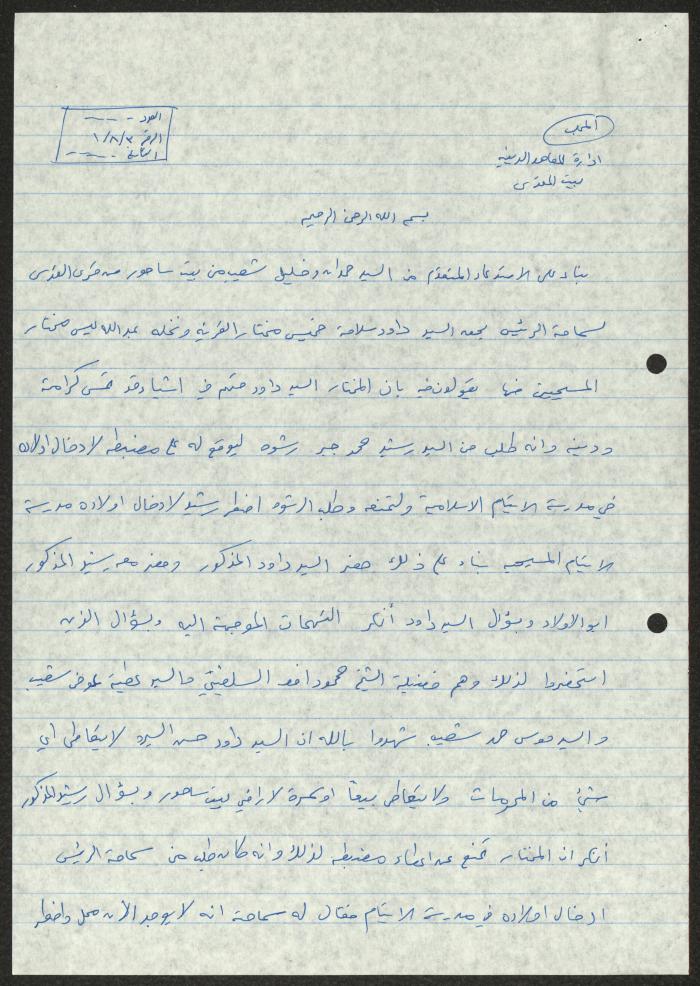 العدد - - - -
الرقم ١/٨/٣
التاريخ - - - -
المجلس
ادارة المعاهد الدينية
ببيت المقدس
بسم الله الرحمن الرحيم
بناء على الاستدعاء المتقدم من السيد حمدان وخليل شعيب من بيت ساحور من قرى القدس
لسماحة الرئيس بحق السيد داود سلامة خميس مختار القرية ونخله عبدالله مختار
المسيحيين فيها يقولون فيه بان المختار السيد داود متهم في اشياء قد تمس كرامته
ودينه وانه طلب من السيد رشيد محمد جبر رشوه ليوقع له على مضبطه لادخال اولاده
في مدرسة الايتام الاسلامية ولتمنعه وطلب الرشوه اضطر رشيد لادخال اولاده مدرسة
الايتام المسيحيه بناء على ذلك حضر السيد داود المذكور وحضر معه رشيد المذكور
ابو الاولاد وبسؤال السيد داود أنكر التهمات الموجهة اليه وبسؤال الذين
استحضروا لذلك وهم فضيلة الشيخ محمود السيد عطية عوض شعيب
والسيد موسى حمد شعيب شهدوا بالله ان السيد داود حسن السيره لا يتعاطى اي
شيء من المحرمات ولا يتعاطى بيعا او سمسرة لاراضي بيت ساحور وبسؤال رشيد المذكور
أنكر ان المختار تمنع عن اعطاء مضبطه لذلك وانه كان طلب من سماحة الرئيس
ادخال اولاده في مدرسة الايتام فقال له سماحته انه لا يوجد الآن محل واضطر